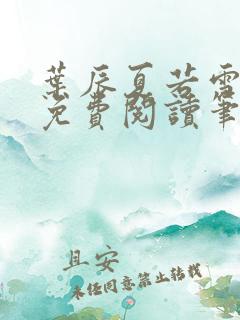 葉辰夏若雪
免費閱讀筆
且安
未經同意禁止轉載